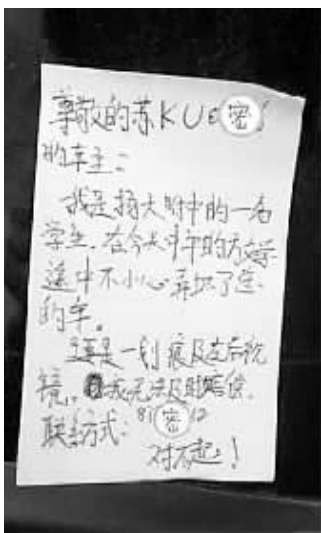 尊敬的苏KUE密
的车主：
我是扬大附中的一名
学生，在今天中午的方
途中不小心弄坏了您
的车。
主要是一划痕及左后视
镜。我无法及时赔偿。
联系方式：81密12
对不起！